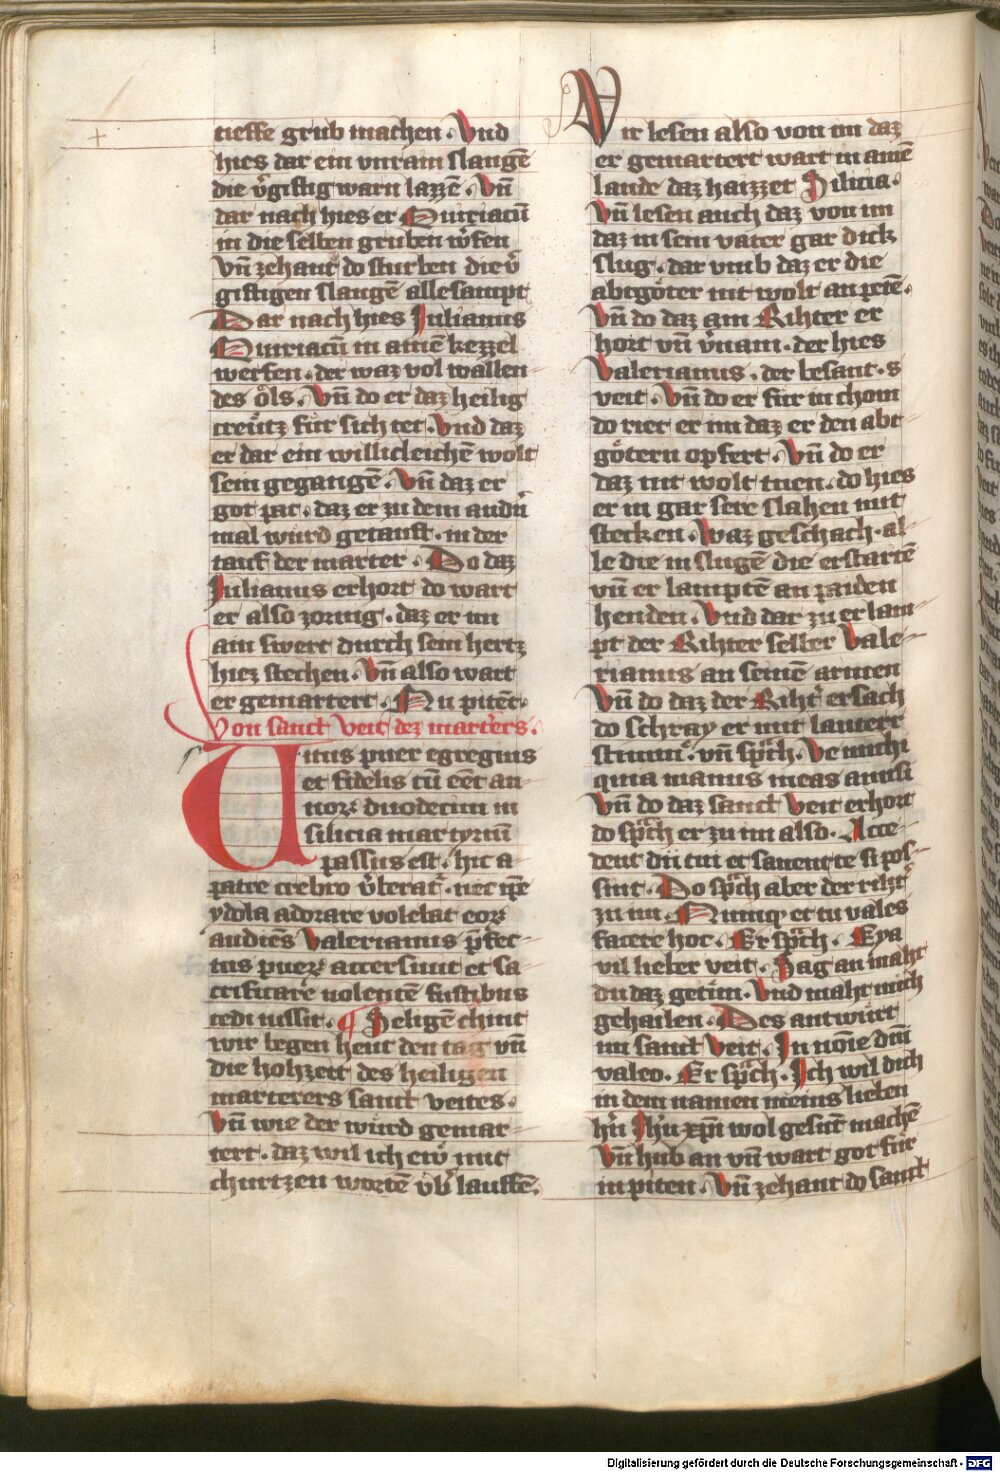 tieffe grub machen. Vnd
hies dar ein vnrain slangē
die v̓giftig warn lazzē. Vn̄
dar nach hies er Quiriacū
in die selben gruben w̓fen
Vn̄ zehant do sturben die v̓
giftigen slangē alle sampt
Dar nach hies Julianus
Quiriacū in ainē kezzel
werfen. der waz vol wallen-
des ôls. Vn̄ do er daz heilig
creütz für sich tet. Vnd daz
er dar ein willicleichē wolt
sein gegangē. Vn̄ daz er
got pat. daz er zu dem andn̓
mal würd getauft. in der
tauf der marter. Do daz
Julianus erhort do wart
er also zornig. daz er im
ain swert durch sein hertz
hiez stechen. Vn̄ also wart
er gemartert. Nu pitēt.
Von sanct Veit dez martrers.
Uitus puer egregius
et fidelis cū eēt an-
norꝝ duodecim in
silicia martyriū
passus est. hic a
patre crebro v̓berat᷑. nec ip̄e
ydola adorare volebat eorꝝ
audiēs Valerianus p̄fec-
tus puerꝝ accersiuit et sa-
crificare nolentē fustibus
cedi iussit. ¶ Heligē chint
wir begen heut den tag vn̄
die hohzeit des heiligen
marterers sanct veites.
Vn̄ wie der würd gemar-
tert. daz wil ich ew̓ mit
churtzen wortē vb̓ lauffē.
Wir lesen also von im daz
er gemartert wart in ainē
lande daz haizzet Silicia.
Vn̄ lesen auch daz von im
daz in sein vater gar dick
slug. dar vmb daz er die
abtgôter nit wolt an petē.
Vn̄ do daz ain Rihter er
hort vn̄ v̓nam. der hies
Valerianus. der besant. s
veit. Vn̄ do er für in chom
do riet er im daz er den abt
gôtern opfert. Vn̄ do er
daz nit wolt tuen. do hies
er in gar sere slahen mit
stecken. Waz geschach. al-
le die in slugē die erstartē
vn̄ er lamptē an paiden
henden. Vnd dar zu er lam-
pt der Rihter selber Vale-
rianus an seinē armen
Vn̄ do daz der Riht᷑ ersach
do schray er mit lauterr
stimm. vn̄ sp̄ch. Ve michi
quia manus meas amisi
Vn̄ do daz sanct Veit erhort
do sp̄ch er zu im also. Acce-
dent dii tui et sanent te si pos-
sint. Do sp̄ch aber der riht᷑
zu im. Numqͥ et tu vales
facere hoc. Er sp̄ch. Eya
vil lieber veit. Sag an maht
du daz getün. Vnd maht mich
gehailen. Des antwürt
im sanct Veit. In noīe dn̄i
valeo. Er sp̄ch. Ich wil dich
in dem namen meins lieben
hr̄n Jh̄u xp̄i wol gesūt machē
Vn̄ hub an vn̄ wart got für
in piten. Vn̄ zehant do sanct
Digitalisierung gefördert durch die Deutsche Forschungsgemeinschaft - DFG